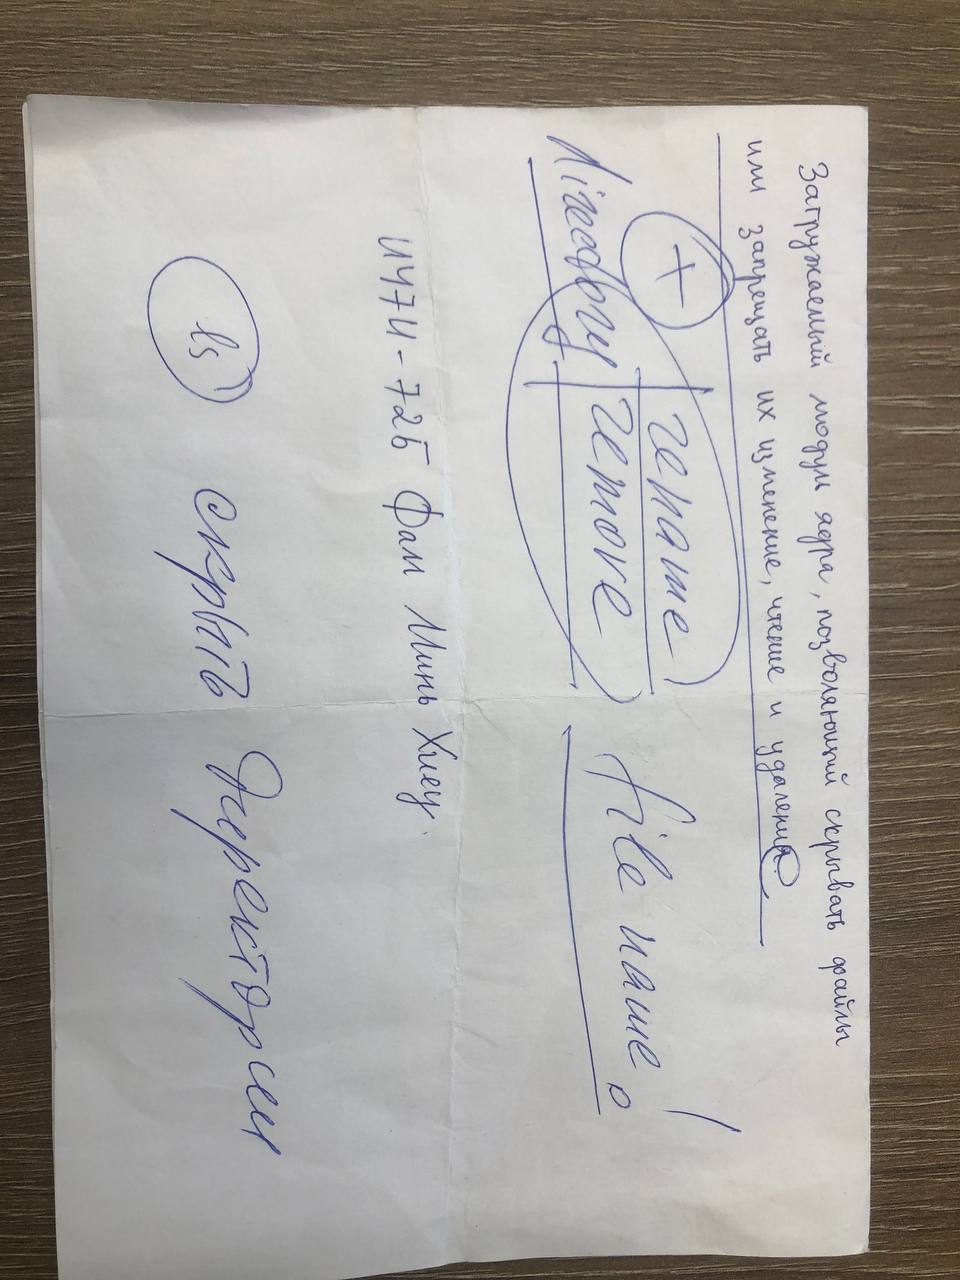 Загружаемый модуль ядра, позволяющий скрывать файлы
или запрещать их изменение, чтение и удаления.
+
rename
directory remove
file name!
ИУ7И-72Б Фам Минь Хиеу.
ls скрыть директории